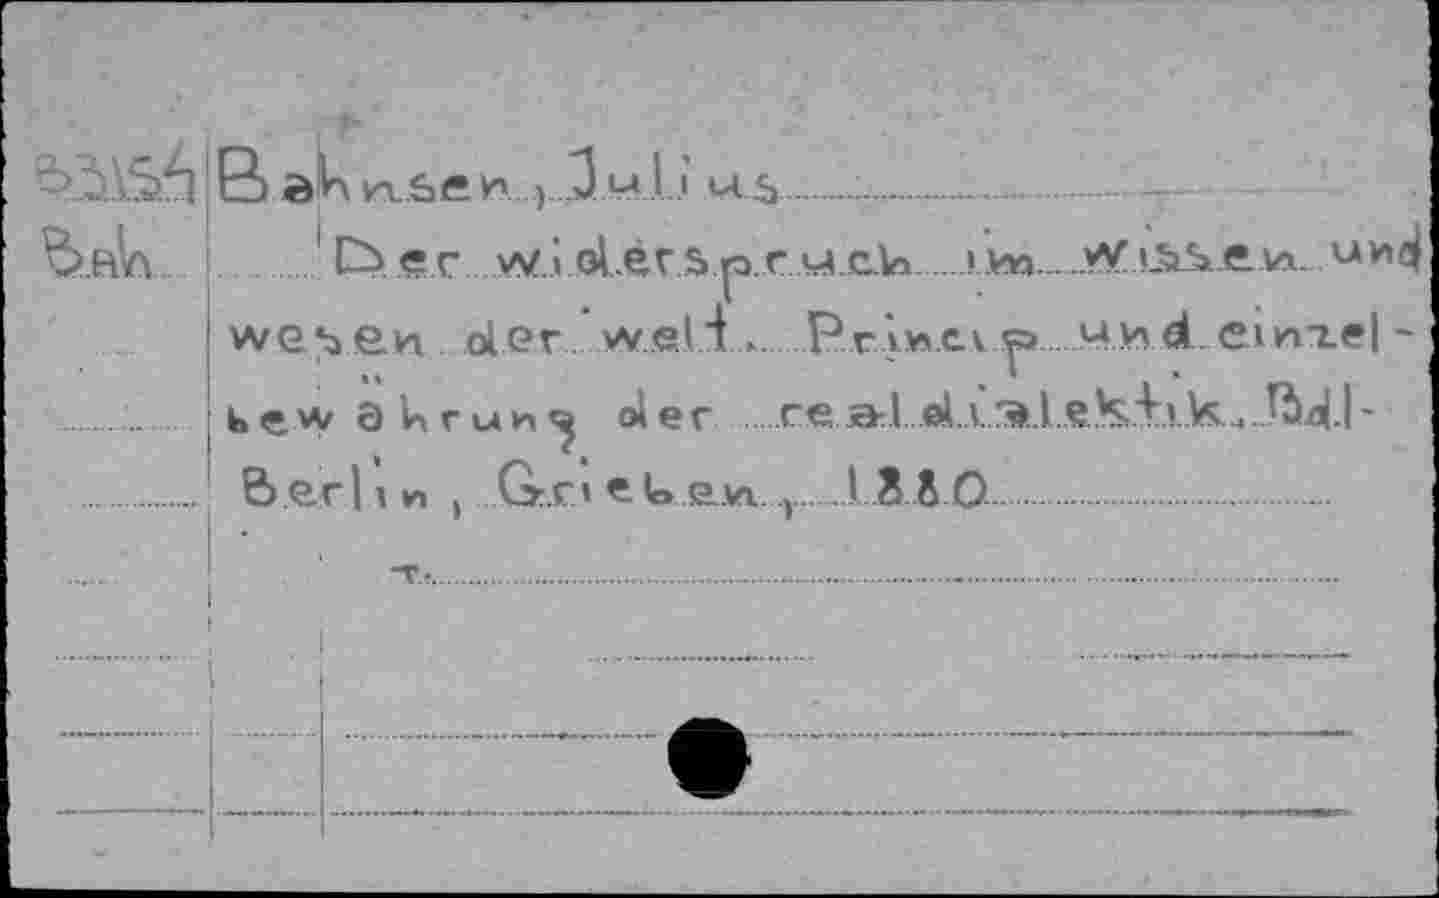 B3154 Bahnsen, Julius
Bah Der widerspruch im wissen und
wesen der welt. Princip und einzel-
bewährung der realdialektik. Bd.1-
Berlin, Grieben, 1880